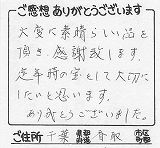 ご感想ありがとうございます
大変に素晴らしい品を
頂き感謝致します。
定年時の宝として大切に
したいと思います。
ありがとうございました。
ご住所 千葉 都道府県 香取 市区町村